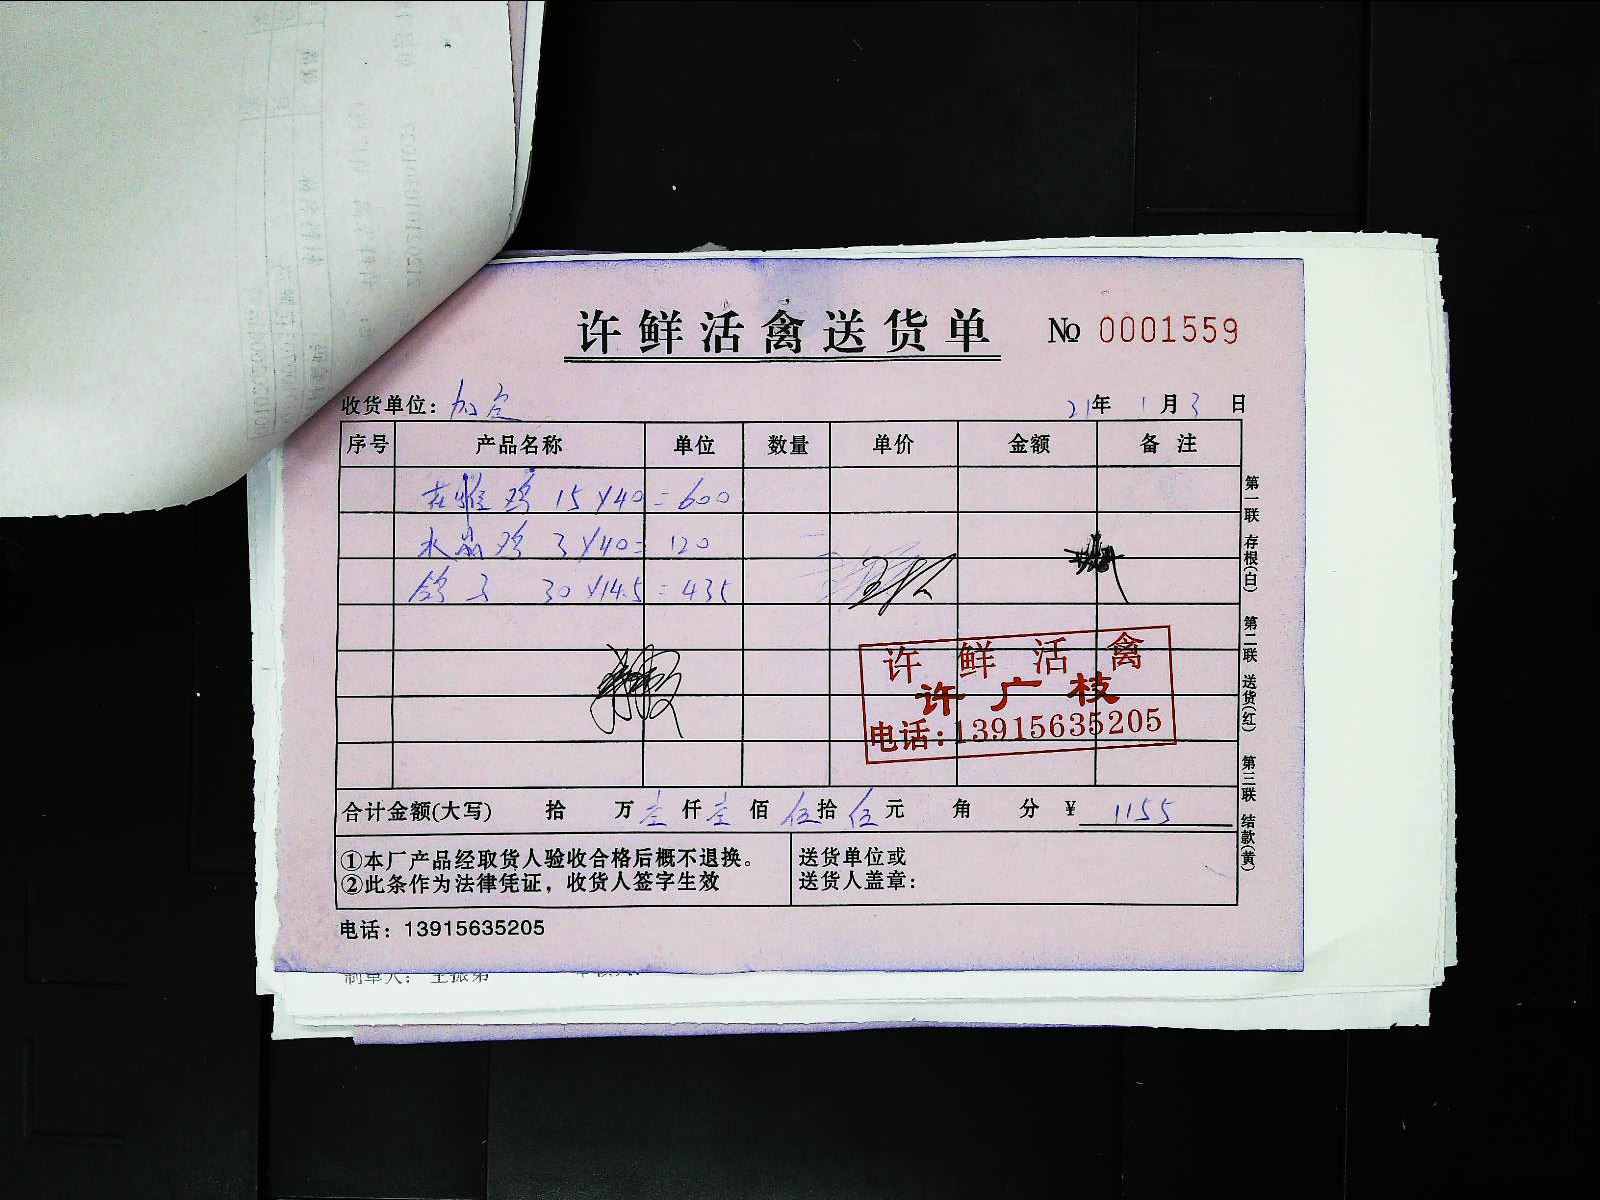 许鲜活禽送货单 № 0001559
收货单位: 21年 1月3日
序号 产品名称 单位 数量 单价 金额 备注
鸡 15×40=600
水 鸡 3×40=120
鸽子 30×14.5=435
许鲜活禽
许广枝
电话:13915635205
合计金额(大写) 拾 万壹仟壹佰伍拾伍元 角 分 ¥ 1155
①本厂产品经取货人验收合格后概不退换。
②此条作为法律凭证，收货人签字生效
送货单位或
送货人盖章:
电话: 13915635205
第一联 存根(白) 第二联 送货(红) 第三联 结款(黄)
制单人: